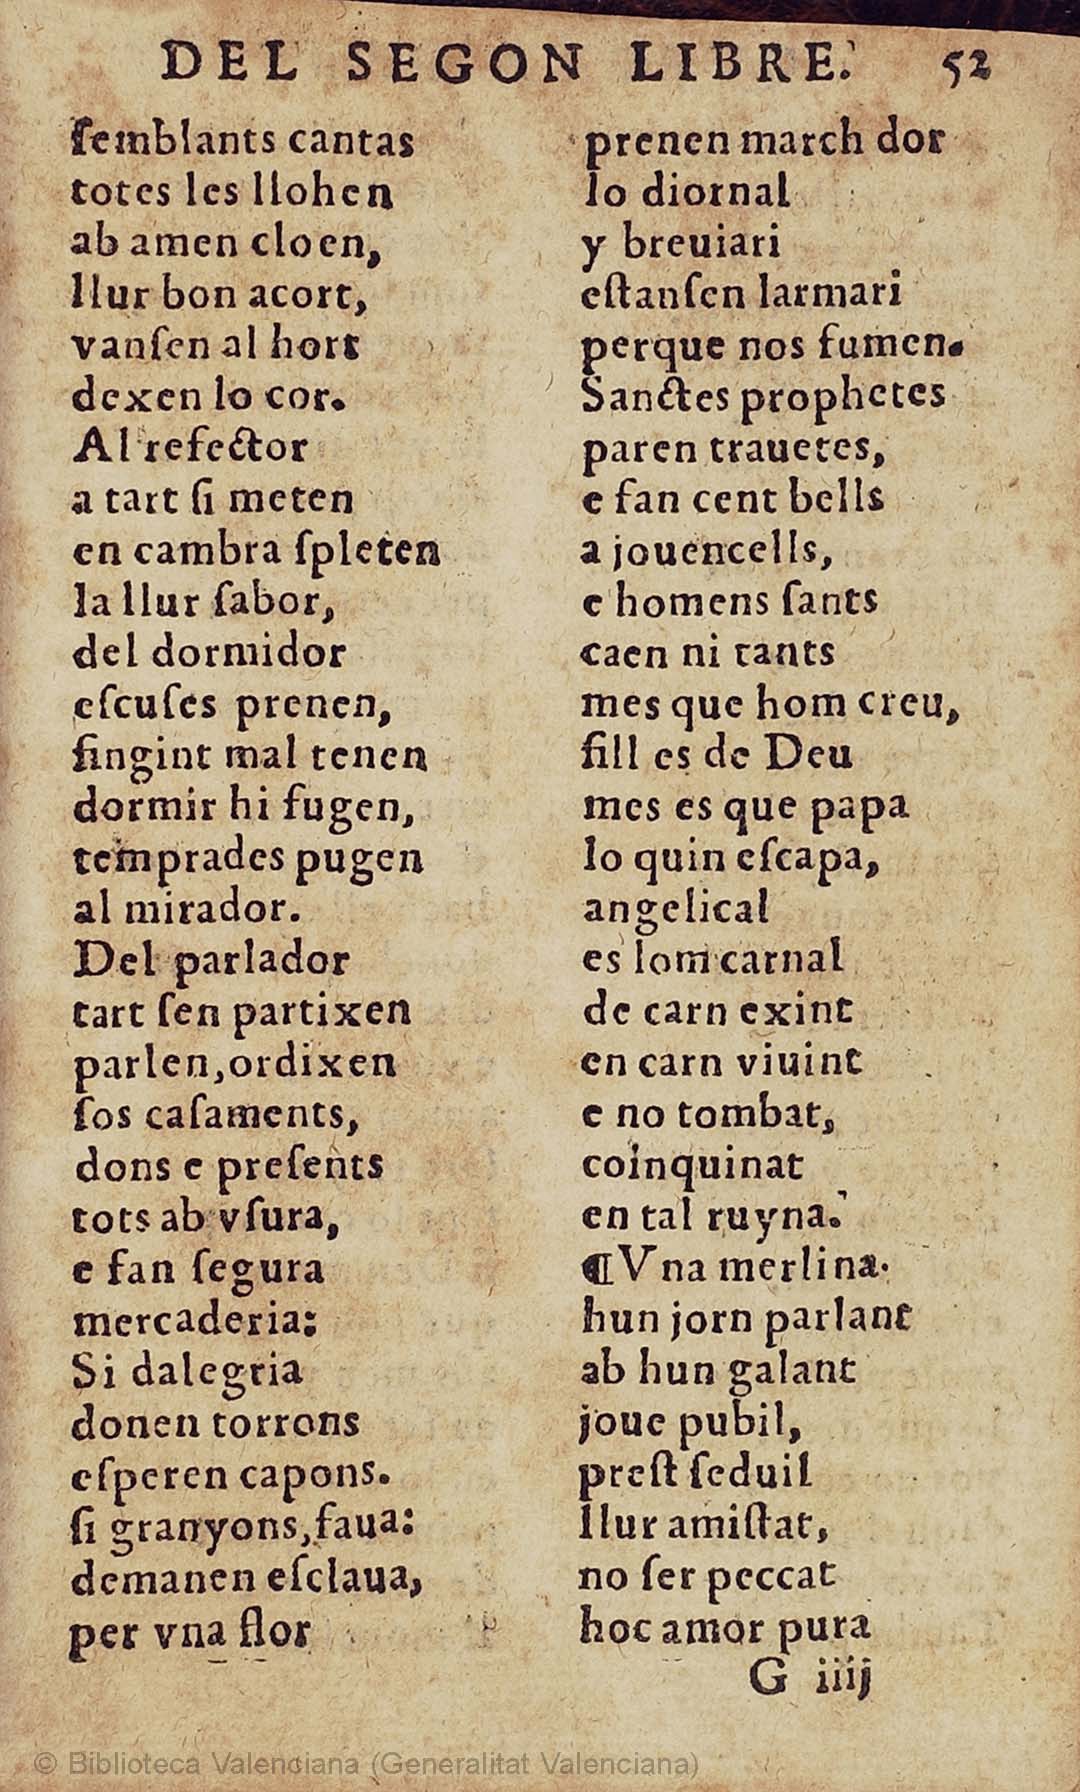 DEL SEGON LIBRE. 52
ſemblants cantas
totes les llohen
ab amen cloen,
llur bon acort,
vanſen al hort
dexen lo cor.
Al refector
a tart ſi meten
en cambra ſpleten
la llur ſabor,
del dormidor
eſcuſes prenen,
fingint mal tenen
dormir hi fugen,
temprades pugen
al mirador.
Del parlador
tart ſen partixen
parlen, ordixen
ſos caſaments,
dons e preſents
tots ab vſura,
e fan ſegura
mercaderia:
Si dalegria
donen torrons
eſperen capons.
ſi granyons, faua:
demanen eſclaua,
per vna flor
prenen march dor
lo diornal
y breuiari
eſtanſen larmari
perque nos fumen.
Sanctes prophetes
paren trauetes,
e fan cent bells
a jouencells,
e homens ſants
caen ni tants
mes que hom creu,
fill es de Deu
mes es que papa
lo quin eſcapa,
angelical
es lom carnal
de carn exint
en carn viuint
e no tombat,
coinquinat
en tal ruyna.
¶Vna merlina.
hun jorn parlant
ab hun galant
joue pubil,
preſt ſeduil
llur amiſtat,
no ſer peccat
hoc amor pura
G iiij
© Biblioteca Valenciana (Generalitat Valenciana)